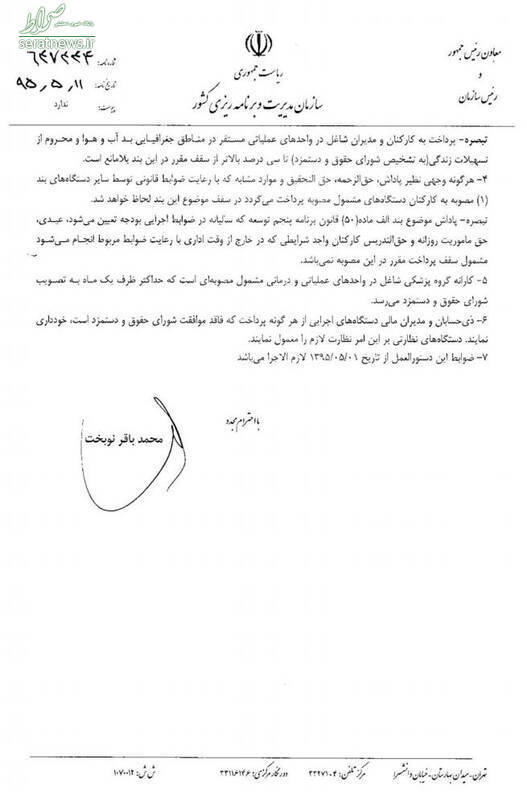 صراط
پایگاه خبری تحلیلی
seratnews.ir
معاون رئیس جمهور
و
رئیس سازمان
ریاست جمهوری
سازمان مدیریت و برنامه ریزی کشور
شماره نامه: ۶۴۷۲۴۴
تاریخ نامه: ۹۵٫۵٫۱۱
پیوست: ندارد
تبصره- پرداخت به کارکنان و مدیران شاغل در واحدهای عملیاتی مستقر در مناطق جغرافیایی بد آب و هوا و محروم از
تسهیلات زندگی(به تشخیص شورای حقوق و دستمزد) تا سی درصد بالاتر از سقف مقرر در این بند بلامانع است.
۴- هرگونه وجهی نظیر پاداش، حق‌الزحمه، حق التحقیق و موارد مشابه که با رعایت ضوابط قانونی توسط سایر دستگاه‌های بند
(۱) مصوبه به کارکنان دستگاه‌های مشمول مصوبه پرداخت می‌گردد در سقف موضوع این بند لحاظ خواهد شد.
تبصره- پاداش موضوع بند الف ماده(۵۰) قانون برنامه پنجم توسعه که سالیانه در ضوابط اجرایی بودجه تعیین می‌شود، عیدی،
حق ماموریت روزانه و حق‌التدریس کارکنان واجد شرایطی که در خارج از وقت اداری با رعایت ضوابط مربوط انجام می‌شود
مشمول سقف پرداخت مقرر در این مصوبه نمی‌باشد.
۵- کارانه گروه پزشکی شاغل در واحدهای عملیاتی و درمانی مشمول مصوبه‌ای است که حداکثر ظرف یک ماه به تصویب
شورای حقوق و دستمزد می‌رسد.
۶- ذی‌حسابان و مدیران مالی دستگاه‌های اجرایی از هر گونه پرداخت که فاقد موافقت شورای حقوق و دستمزد است، خودداری
نمایند. دستگاه‌های نظارتی بر این امر نظارت لازم را معمول نمایند.
۷- ضوابط این دستورالعمل از تاریخ ۱۳۹۵/۰۵/۰۱ لازم الاجرا می‌باشد
با احترام مجدد
محمد باقر نوبخت
تهران- میدان بهارستان- خیابان دانشسرا مرکز تلفن: ۳۳۲۷۱۰۴ دورنگار مرکزی: ۳۳۱۱۶۱۴۶ ش ش: ۱۰۷۰۰۱۲